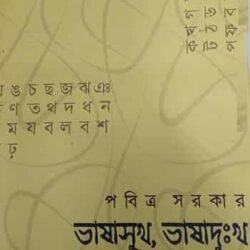 ঙ চ ছ জ ঝ ঞ
ণ ত থ দ ধ ন
ম য ব ল ব শ
ঢ়
পবিত্র সরকার
ভাষাসুখ, ভাষাদুঃখ